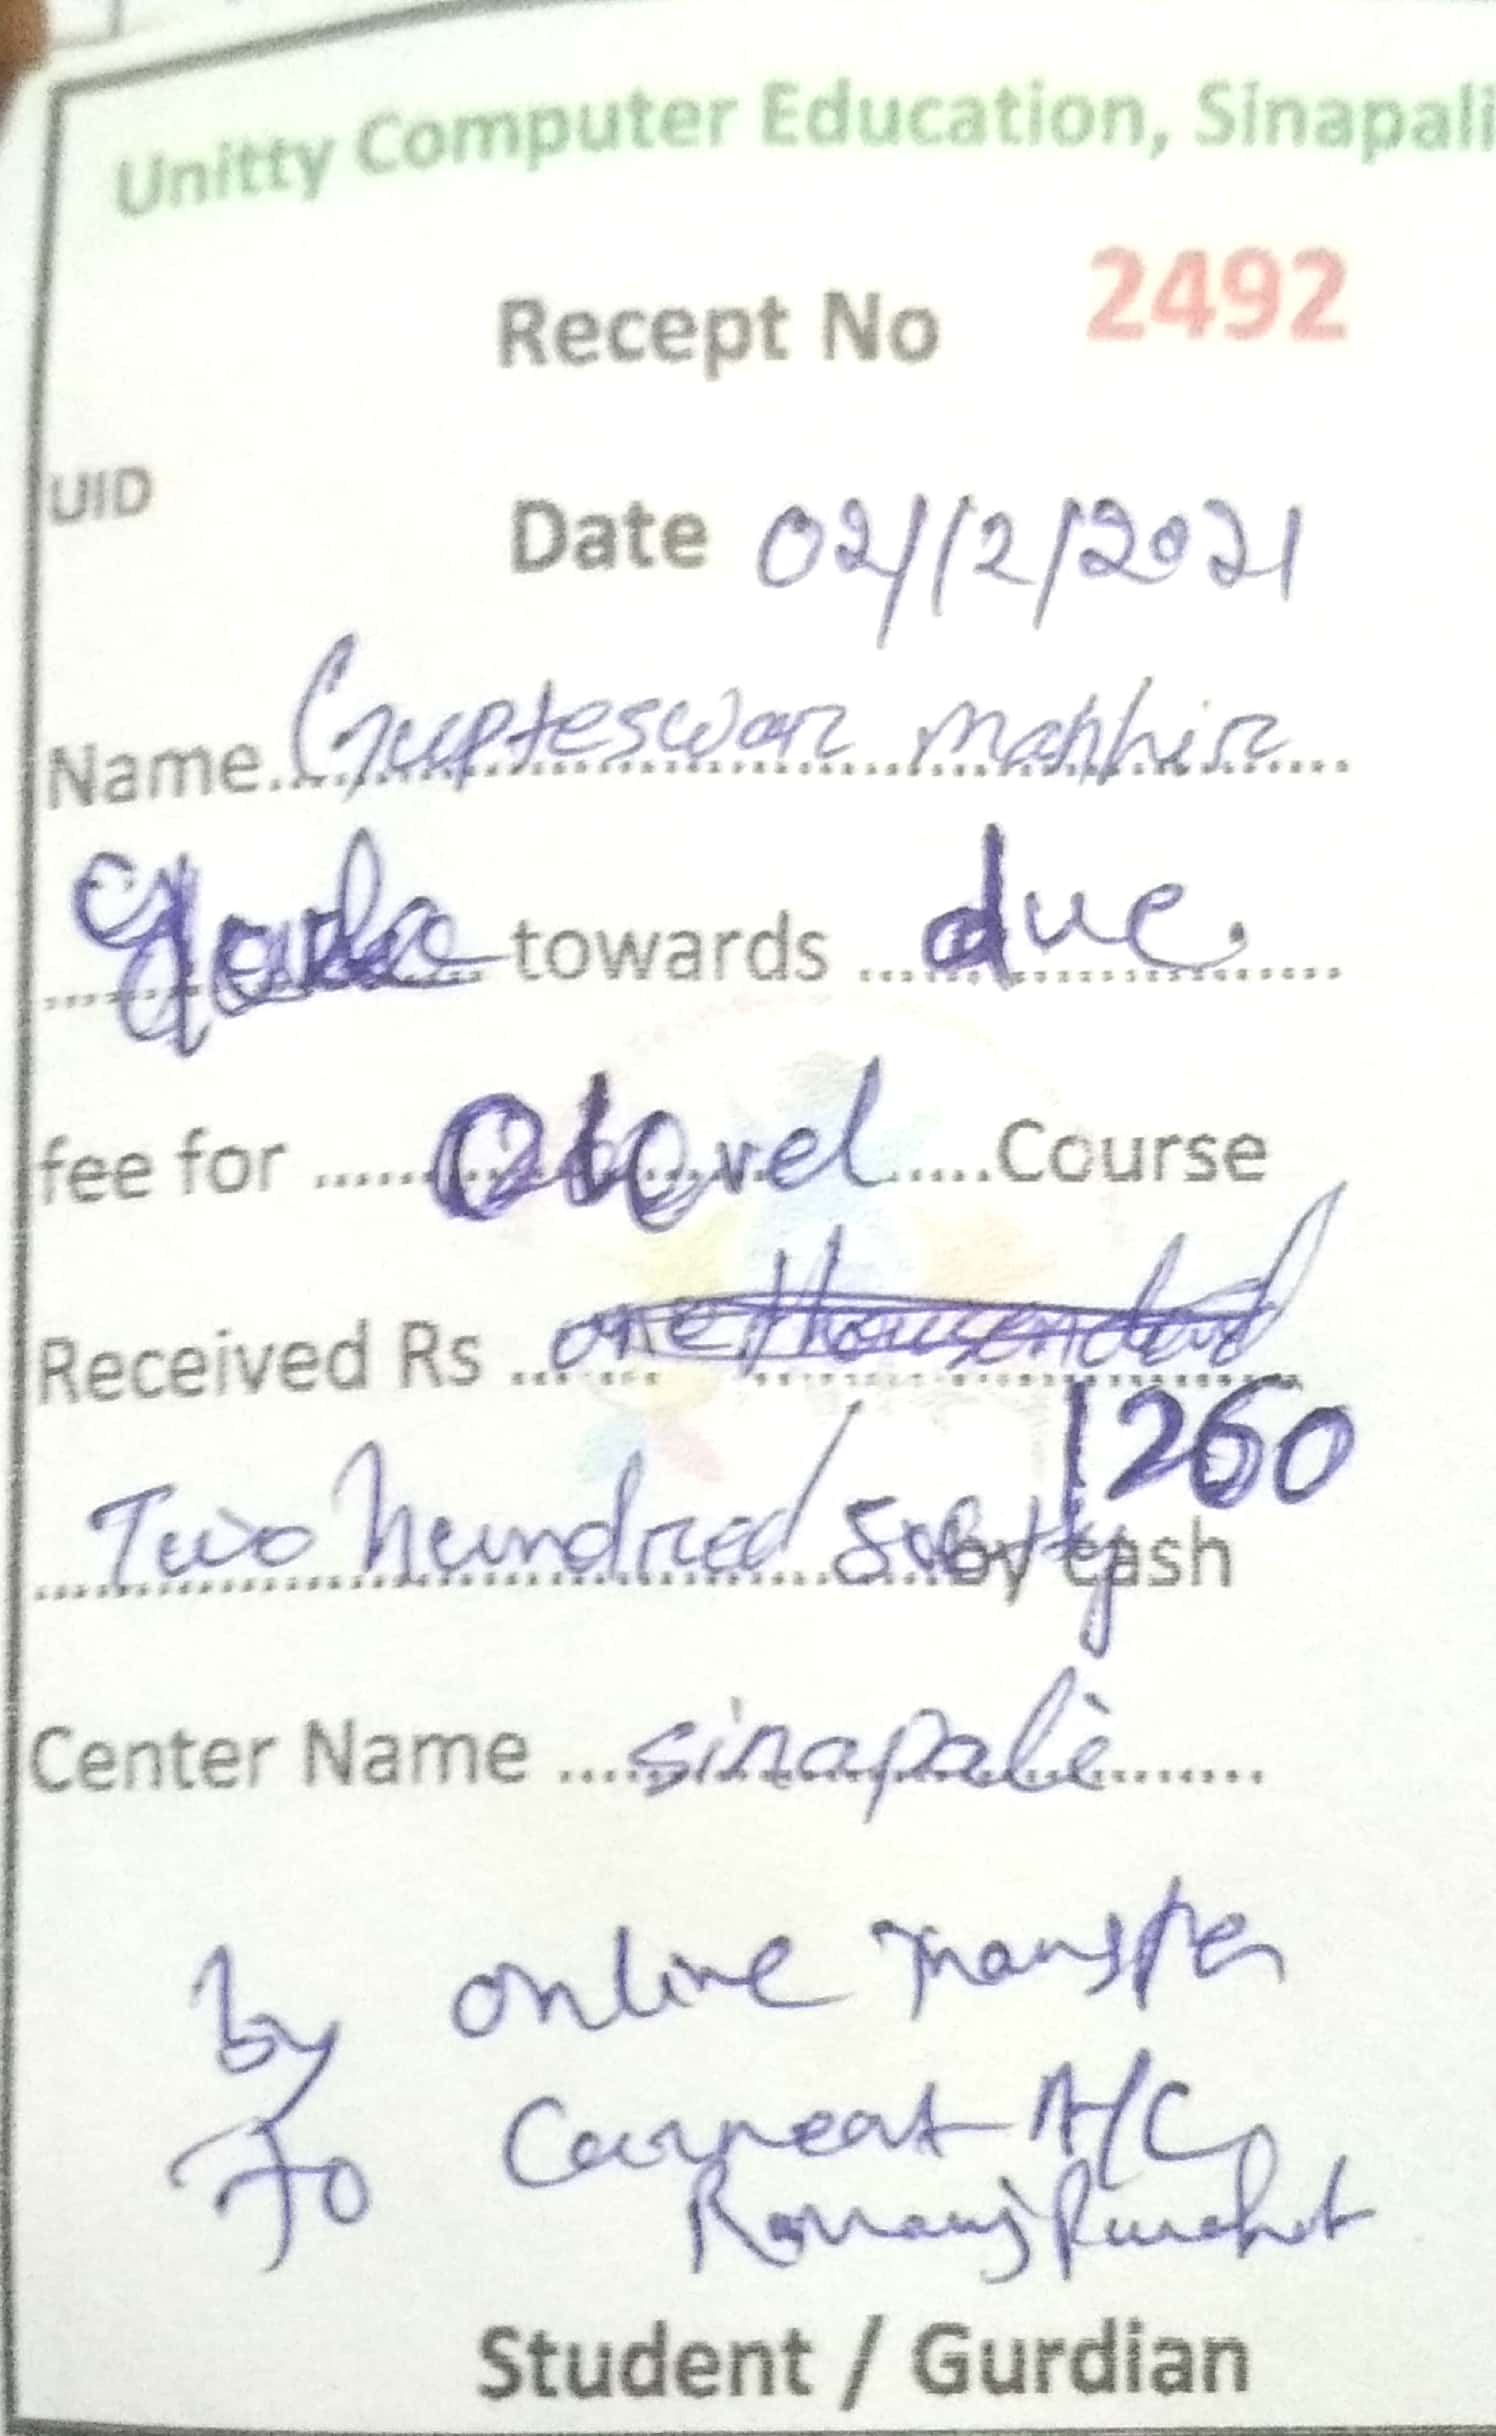 Unitty Computer Education, Sinapali
Recept No 2492
UID
Date 02/12/2021
Name Gupteswar
towards due.
fee for Olevel Course
Received Rs one thousand
1260
Two hundred sixty by cash
Center Name sinapali
by online Transfer
To Current A/C
Student / Gurdian